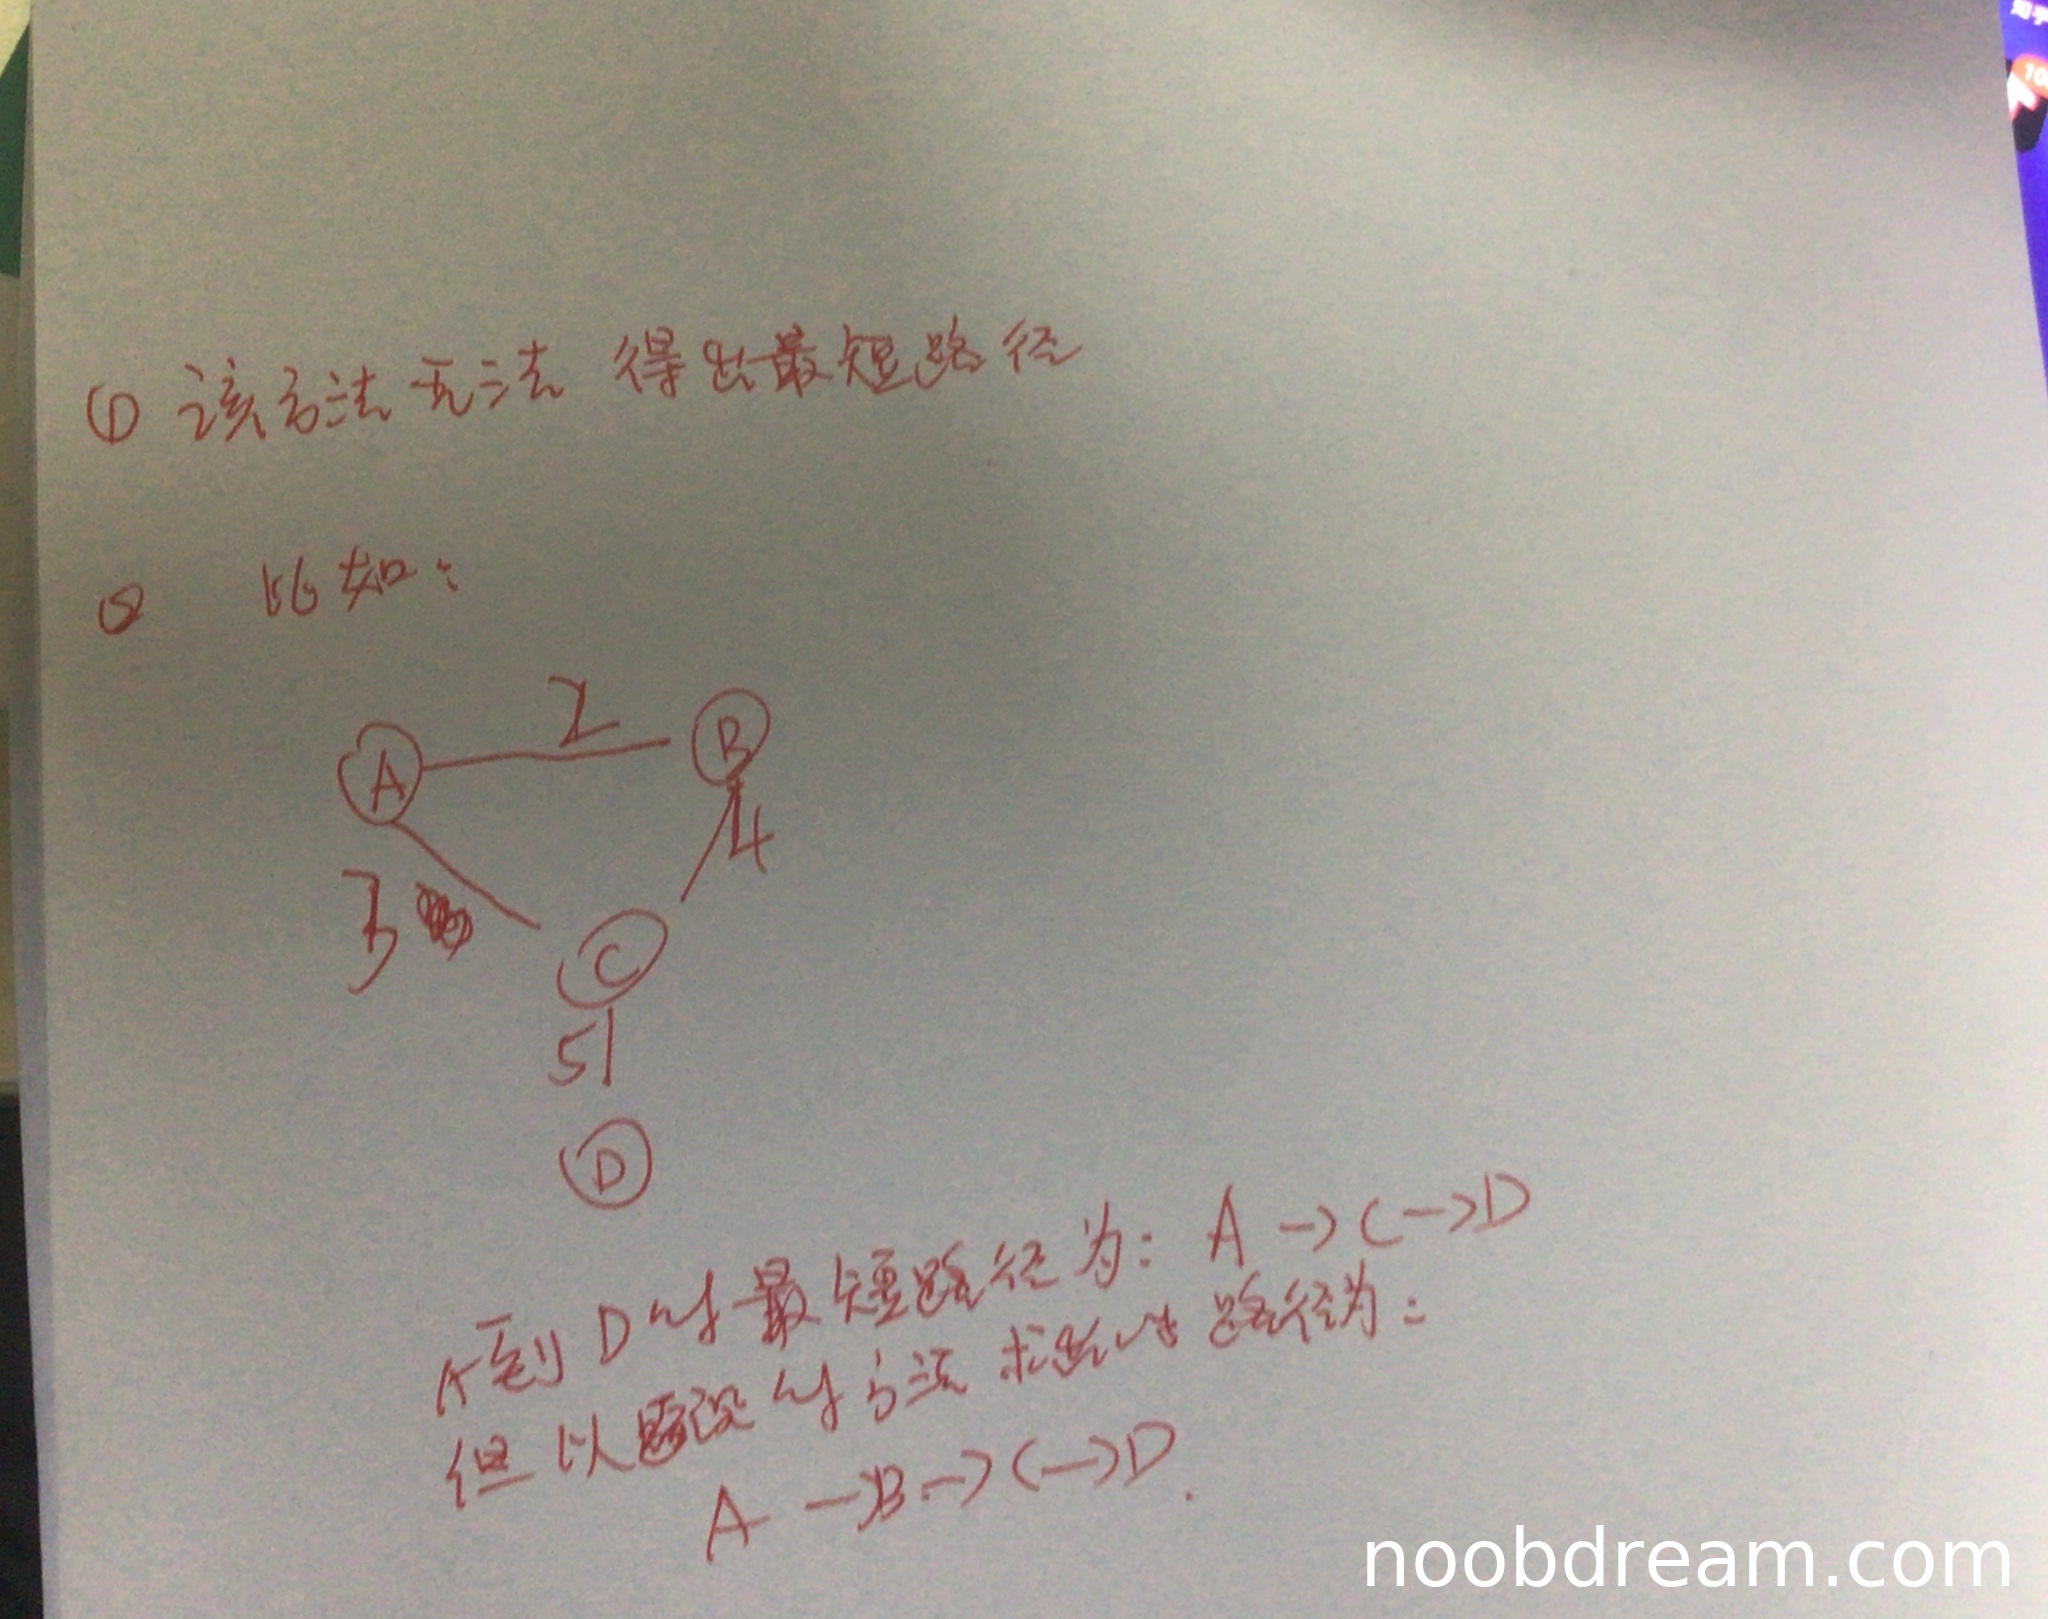 ① 该方法无法得出最短路径
② 比如:
A 2 B
3 4
C
5
D
A到D的最短路径为: A→C→D
但以题设的方法求出的路径为:
A→B→C→D.
noobdream.com
知乎